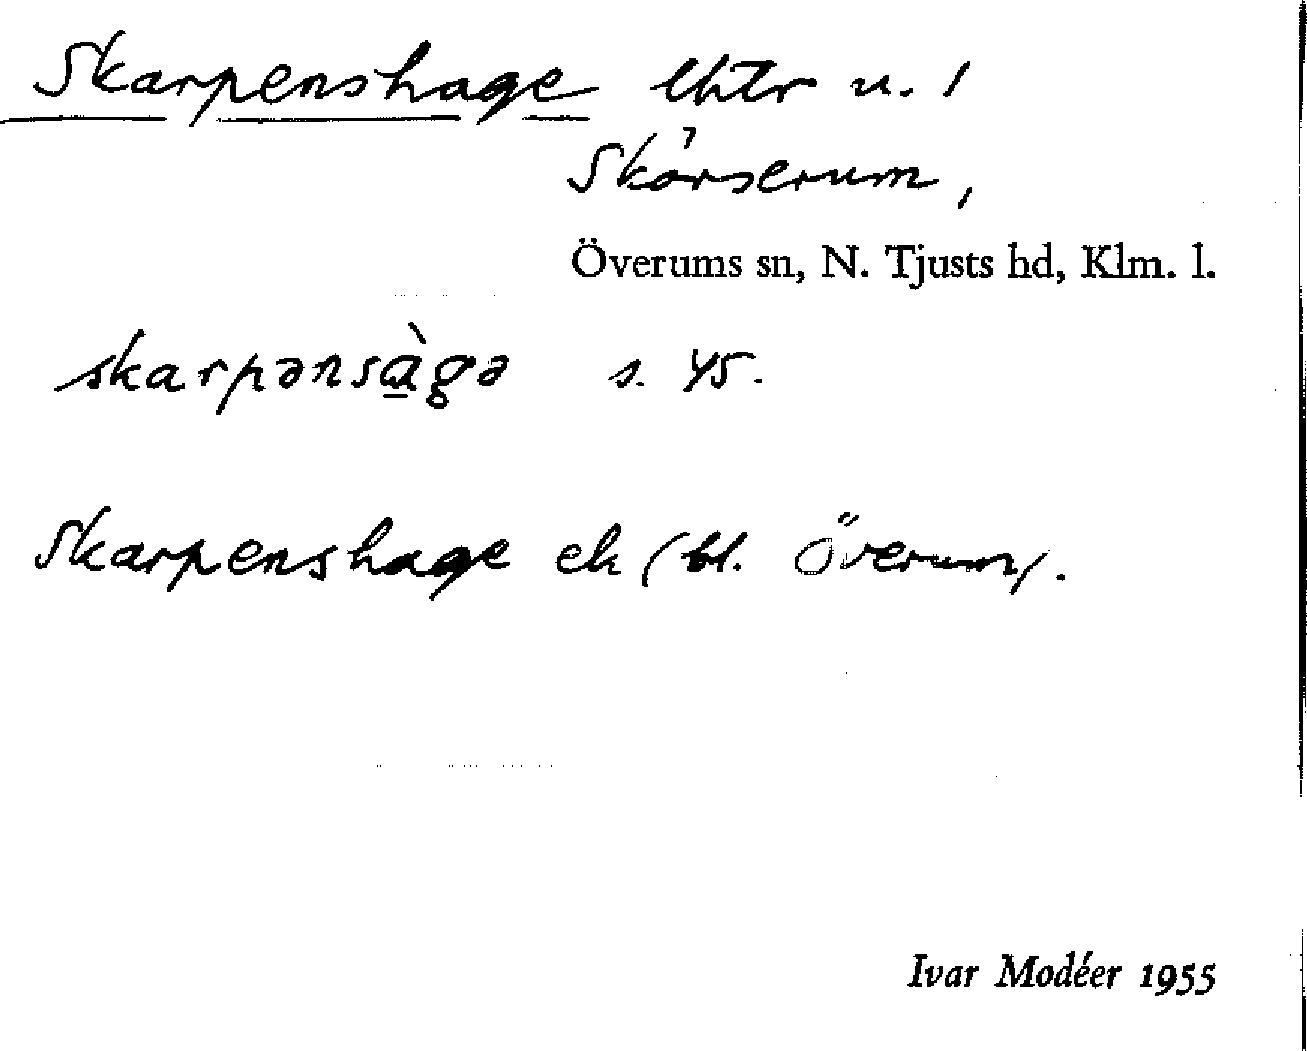 Skarpenshage lhtr u. 1
Skörserum,
Överums sn, N. Tjusts hd, Klm. l.
skarpənsàgə s. 45.
Skarpenshage ek (bl. Överum).
Ivar Modéer 1955